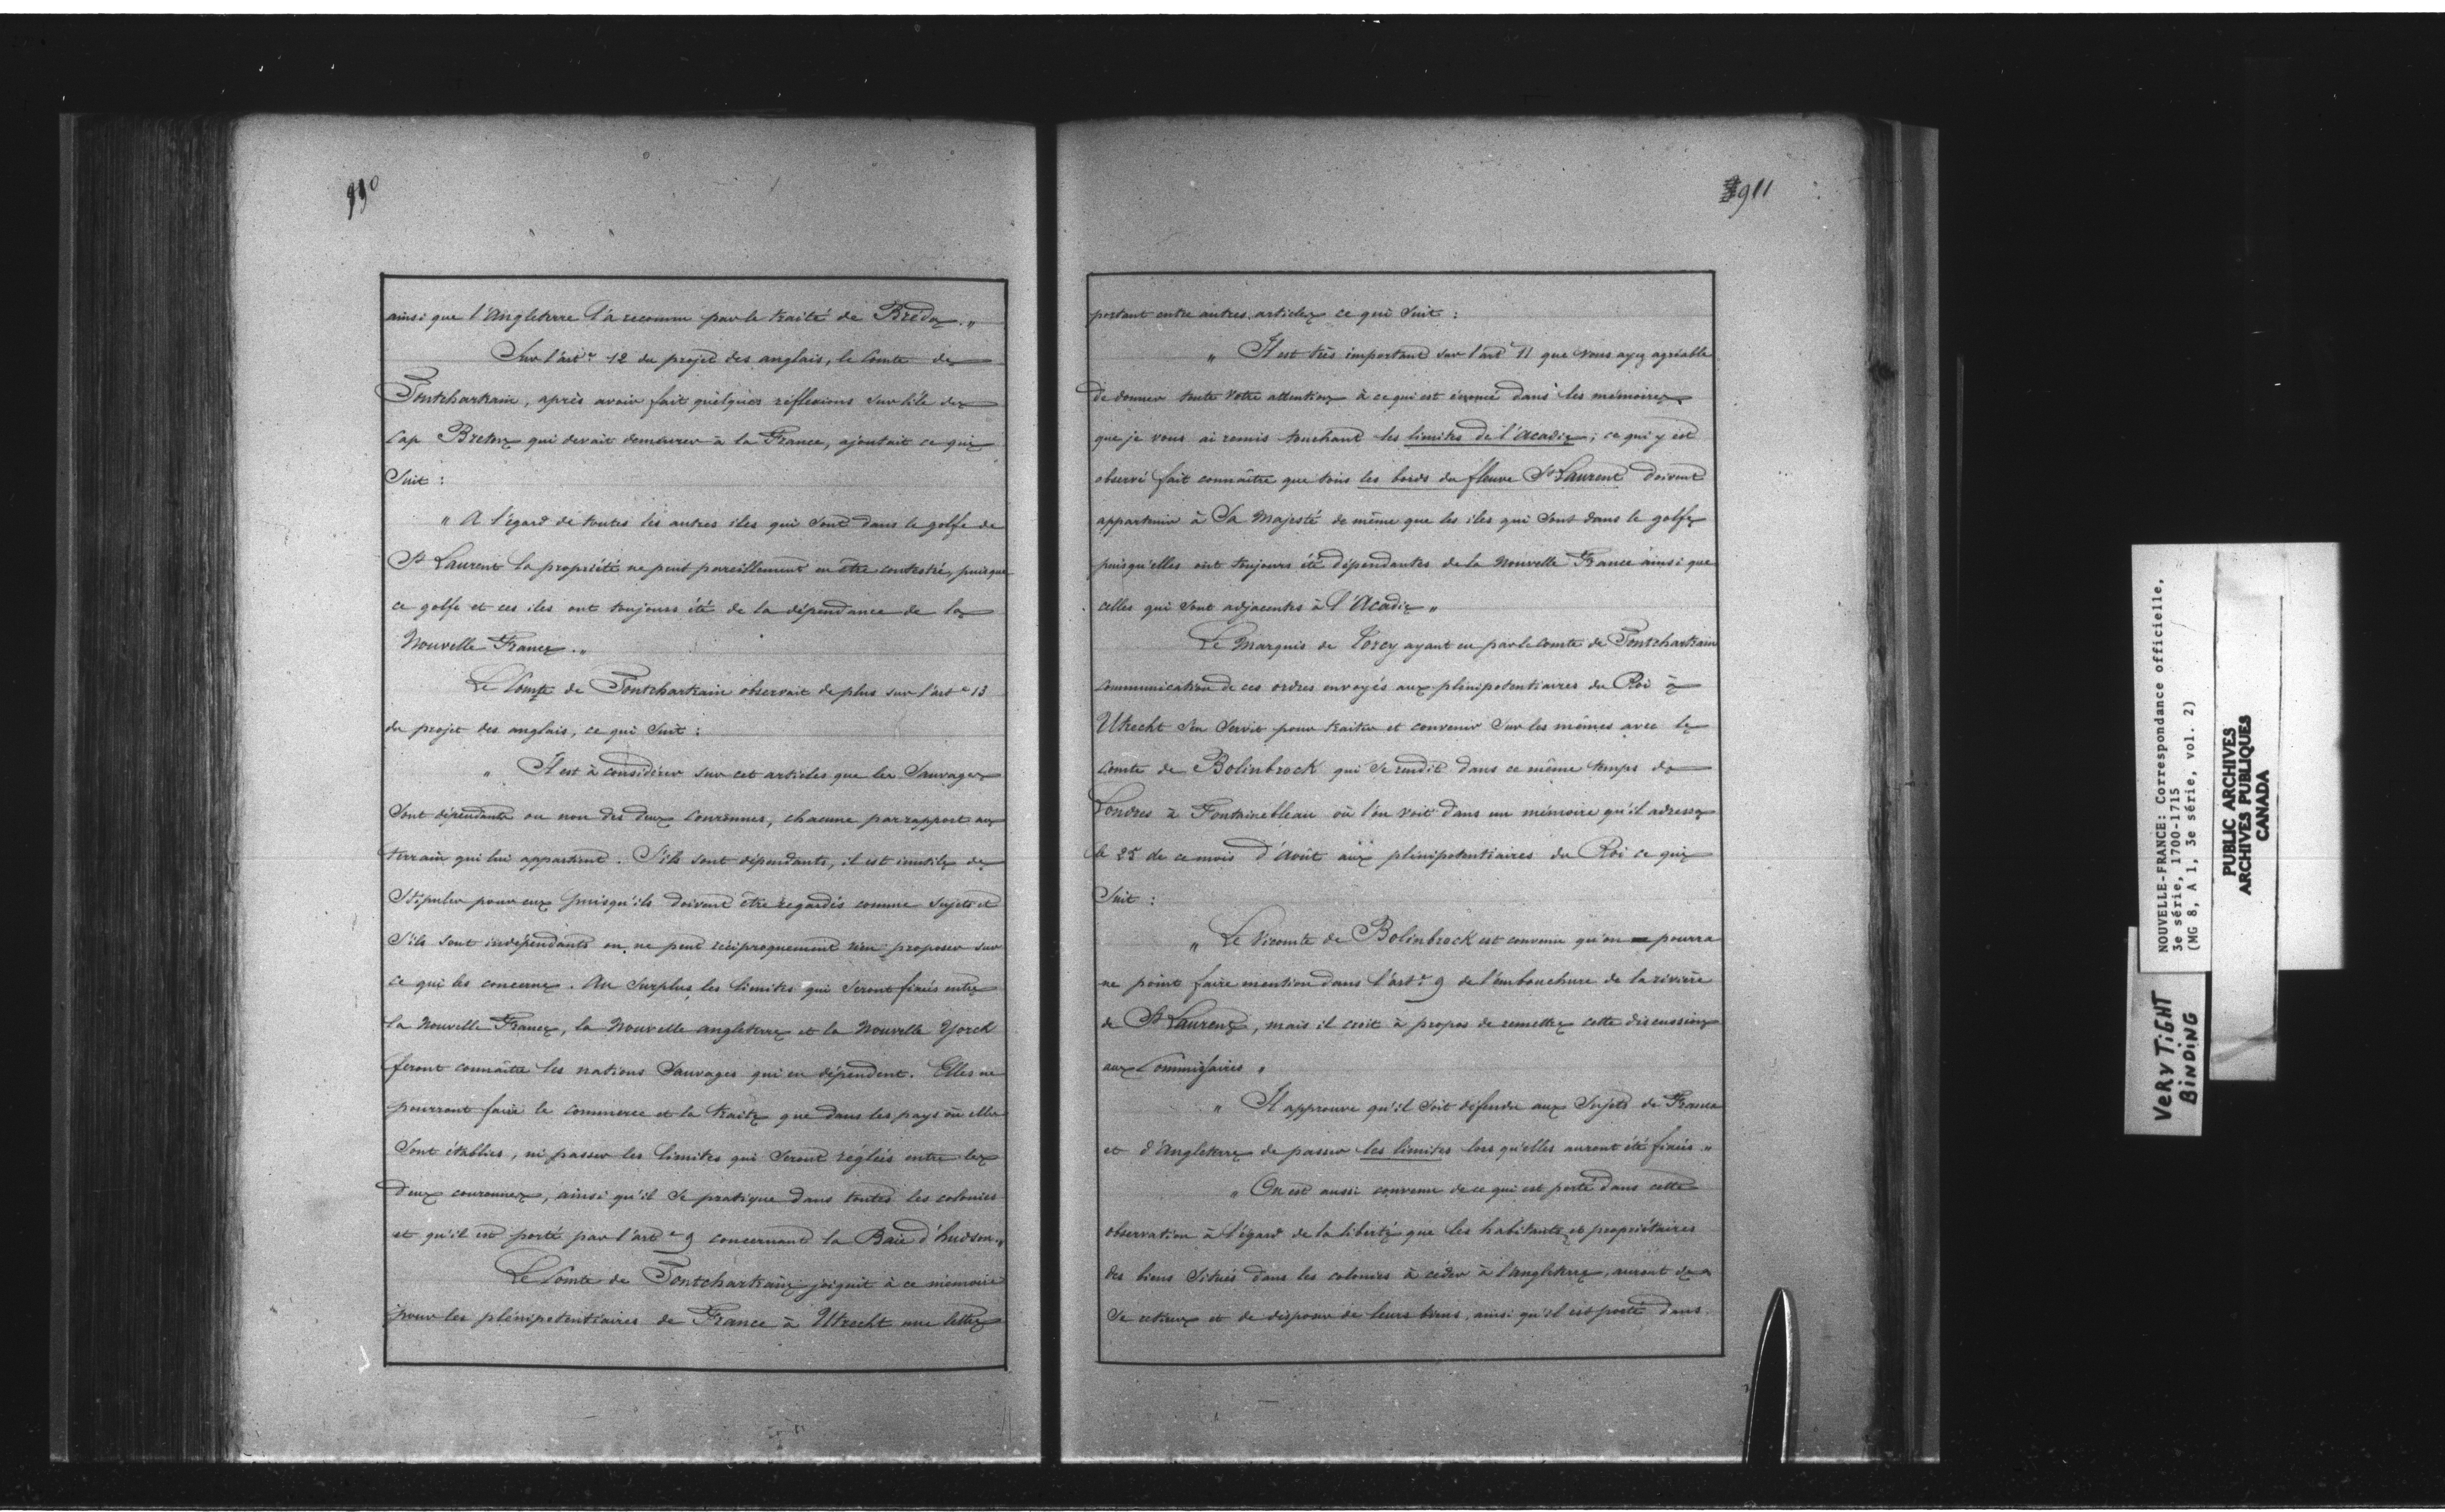 910
ainsi que l'Angleterre l'a reconnu par le traité de Breda. "
Sur l'art.e 12 du projet des anglais, le Comte de
Pontchartrain, après avoir fait quelques réflexions sur l'ile du
Cap Breton qui devait demeurer à la France, ajoutait ce qui
Suit :
" A l'égard de toutes les autres iles qui sont dans le golfe de
St Laurent la propriété ne peut pareillement en être contestée, puisque
ce golfe et ces iles ont toujours été de la dépendance de la
Nouvelle France. "
Le Comte de Pontchartrain observait de plus sur l'art.e 13
du projet des anglais, ce qui suit :
" Il est à considérer sur cet articles que les Sauvages
Sont dépendants ou non des deux Couronnes, chacune par rapport au
terrain qui lui appartient. S'ils sont dépendants, il est inutile de
Stipuler pour eux puisqu'ils doivent être regardés comme sujets et
S'ils sont indépendants on ne peut réciproquement rien proposer sur
ce qui les concerne. Au surplus, les limites qui seront fixées entre
la Nouvelle France, la Nouvelle angleterre et la Nouvelle Yorck
feront connaître les nations Sauvages qui en dépendent. Elles ne
pourront faire le commerce et la traite que dans les pays où elles
Sont établies, ni passer les limites qui seront réglées entre les
deux couronnes, ainsi qu'il se pratique dans toutes les colonies
et qu'il est porté par l'art.e 9 concernant la Baie d'hudson. "
Le Comte de Pontchartrain joignit à ce mémoire
pour les plénipotentiaires de France à Utrecht une lettre
911
portant entre autres articles ce qui suit :
" Il est très important sur l'art.e 11 que vous ayez agréable
de donner toute votre attention à ce qui est énoncé dans les mémoires
que je vous ai remis touchant les limites de l'Acadie ; ce qui y est
observé fait connaître que tous les bords du fleuve St Laurent doivent
appartenir à Sa Majesté de même que les iles qui sont dans le golfe
puisqu'elles ont toujours été dépendantes de la Nouvelle France ainsi que
celles qui sont adjacentes à l'Acadie "
Le Marquis de Torcy ayant eu par le comte de Pontchartrain
communication de ces ordres envoyés aux plénipotentiaires du Roi à
Utrecht s'en servit pour traiter et convenir sur les mêmes avec le
Comte de Bolinbrock qui se rendit dans ce même temps de
Londres à Fontainebleau où l'on voit dans un mémoire qu'il adressa
le 25 de ce mois d'Août aux plénipotentiaires du Roi ce qui
Suit :
" Le Vicomte de Bolinbrock est convenu qu'on pourra
ne point faire mention dans l'art.e 9 de l'embouchure de la rivière
de St Laurent, mais il croit à propos de remettre cette discussion
aux Commissaires "
" Il approuve qu'il soit défendu aux Sujets de France
et d'Angleterre de passer les limites lors qu'elles auront été fixées "
" On est aussi convenu de ce qui est porté dans cette
observation à l'égard de la liberté que les habitants et propriétaires
des biens situés dans les colonies à céder à l'angleterre, auront de
se retirer et de disposer de leurs biens, ainsi qu'il est porté dans
NOUVELLE-FRANCE: Correspondance officielle,
3e série, 1700-1715
(MG 8, A 1, 3e série, vol. 2)
PUBLIC ARCHIVES
ARCHIVES PUBLIQUES
CANADA
VERY TiGHT
BiNDiNG